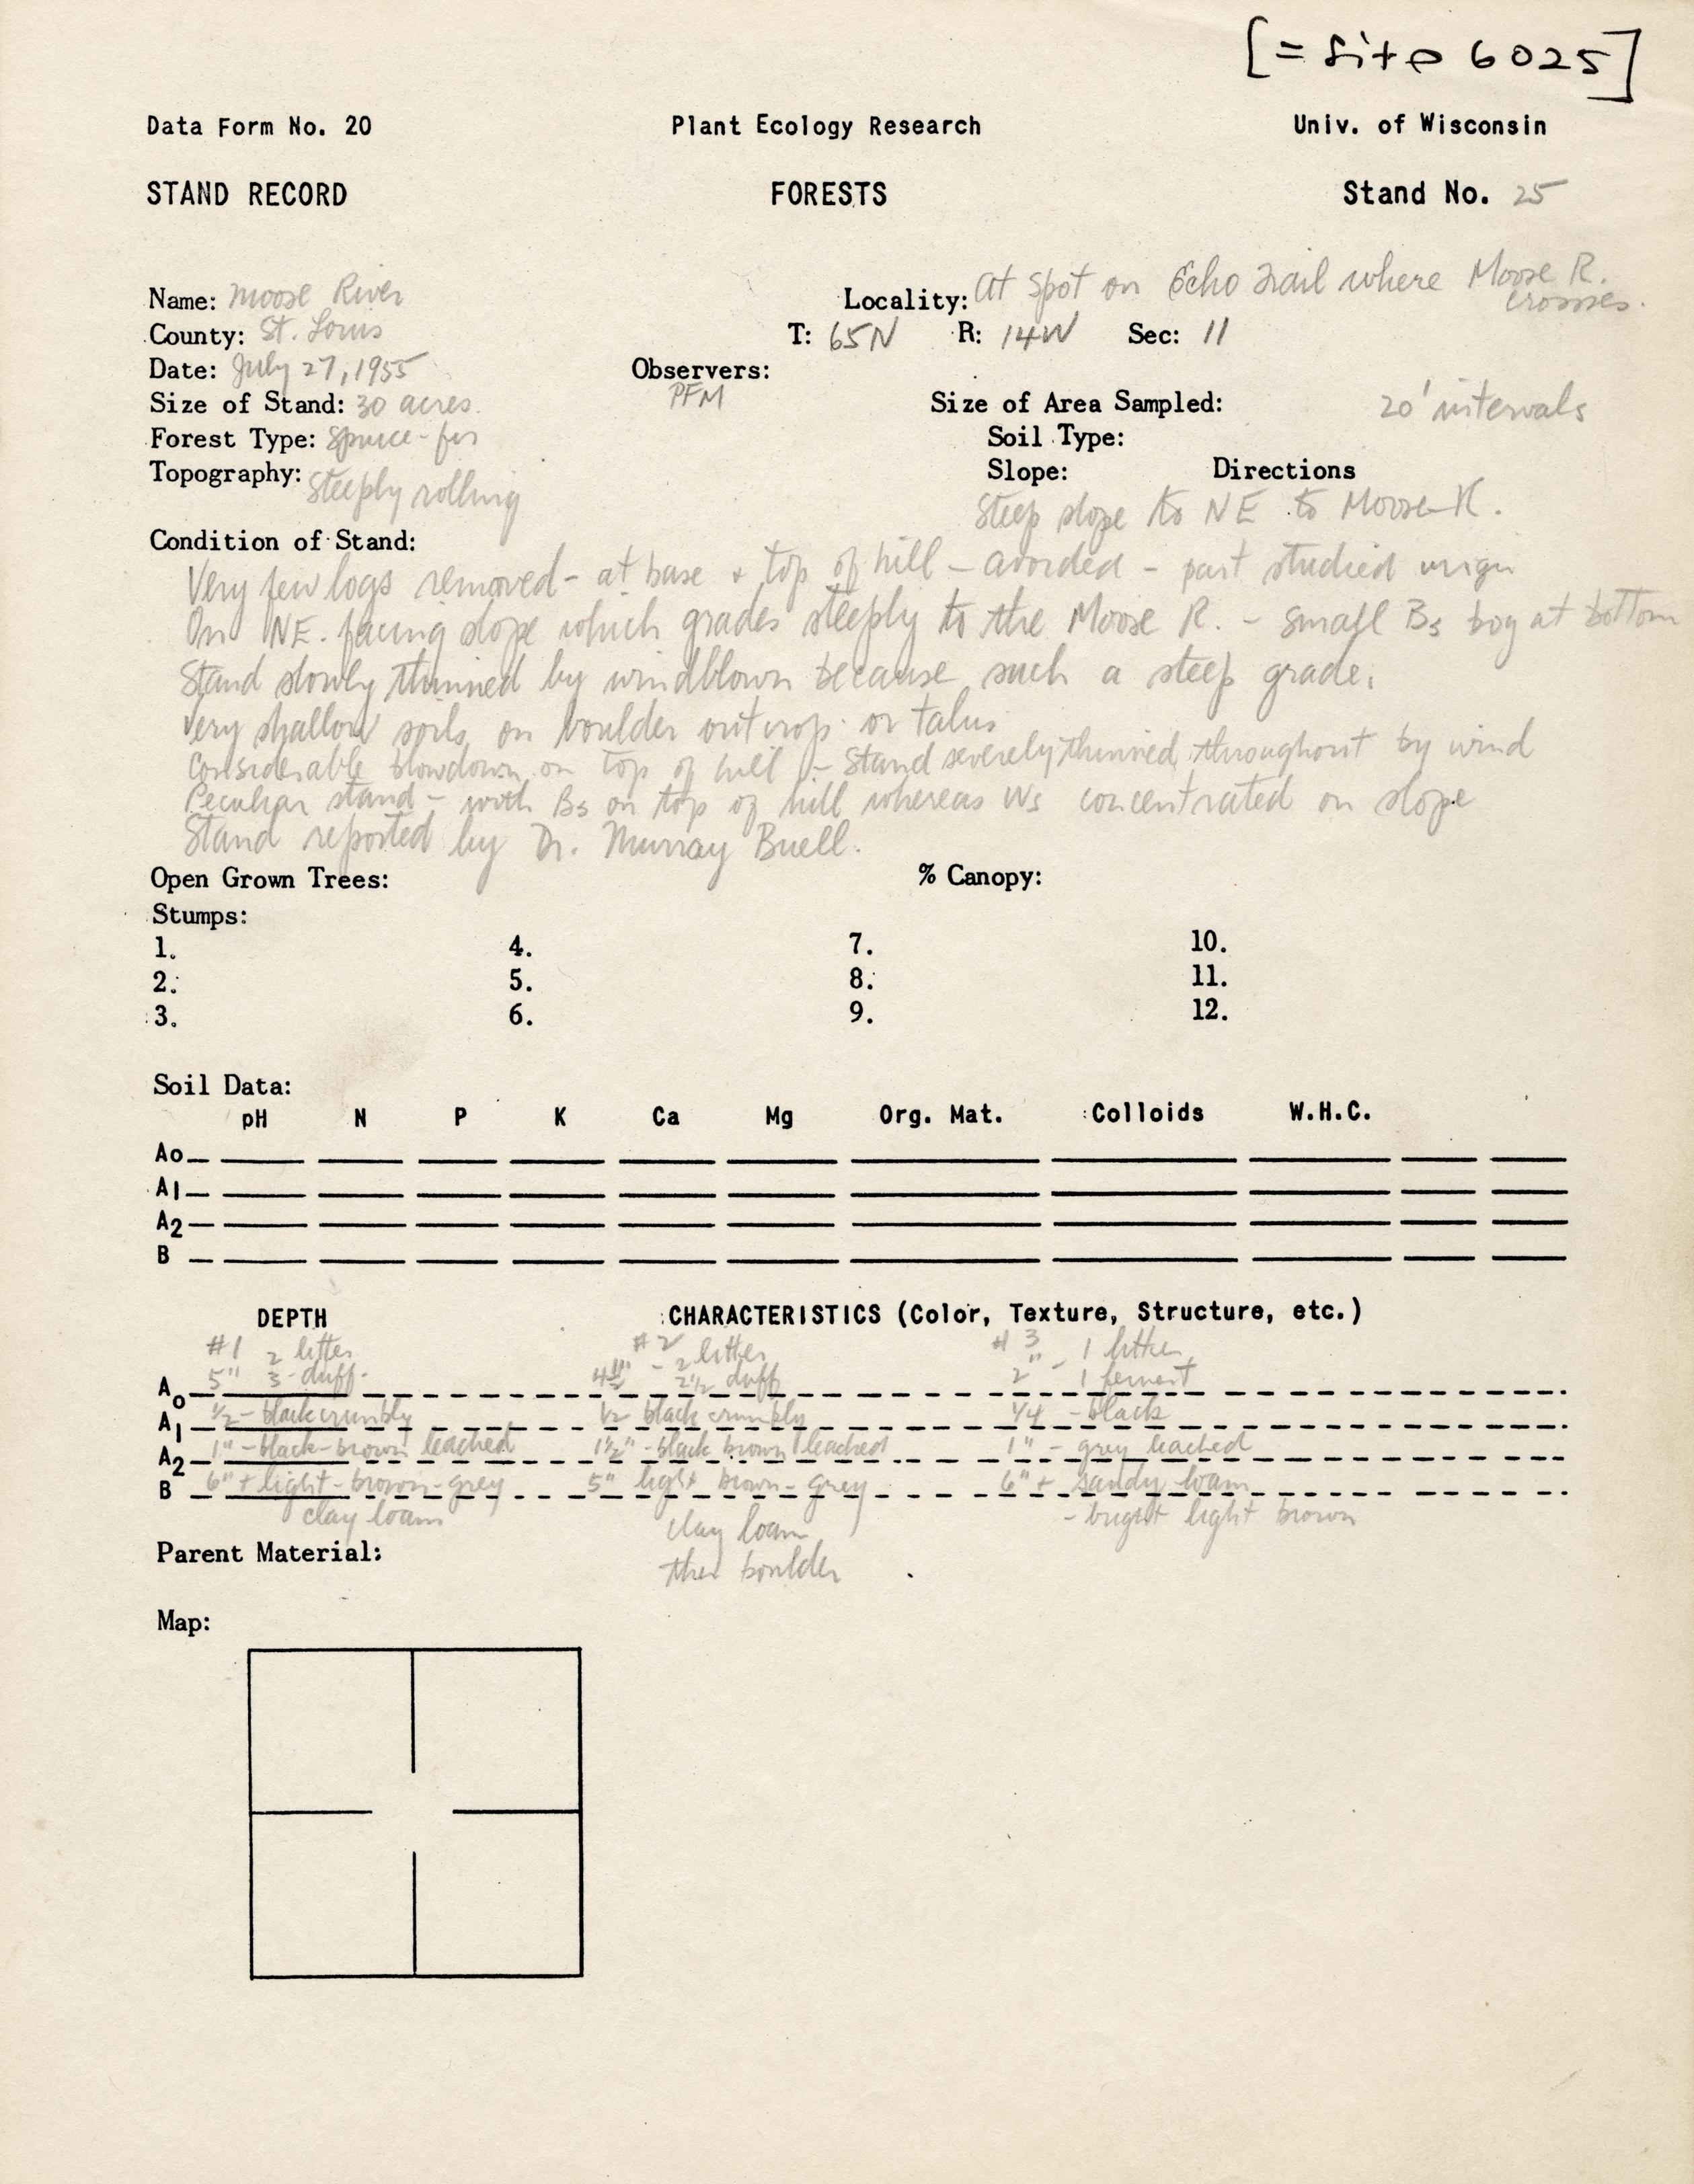 [= Site 6025]
Data Form No. 20 Plant Ecology Research Univ. of Wisconsin
STAND RECORD FORESTS Stand No. 25
Name: Moose River Locality: At spot on Echo Trail where Moose R. crosses.
County: St. Louis T: 65N R: 14W Sec: 11
Date: July 27, 1955 Observers: PFM
Size of Stand: 30 acres. Size of Area Sampled: 20' intervals
Forest Type: Spruce-fir Soil Type:
Topography: Steeply rolling Slope: Directions
Steep slope to NE to Moose R.
Condition of Stand:
Very few logs removed - at base + top of hill - avoided - part studied virgin
On NE. facing slope which grades steeply to the Moose R. - small Bs bog at bottom
Stand slowly thinned by windblown because such a steep grade.
Very shallow soils on boulder outcrop or talus
Considerable blowdown on top of hill - Stand severely thinned throughout by wind
Peculiar stand - with Bs on top of hill whereas Ws concentrated on slope
Stand reported by Dr. Murray Buell.
Open Grown Trees: % Canopy:
Stumps:
1. 4. 7. 10.
2. 5. 8. 11.
3. 6. 9. 12.
Soil Data:
pH N P K Ca Mg Org. Mat. Colloids W.H.C.
Ao
A1
A2
B
DEPTH CHARACTERISTICS (Color, Texture, Structure, etc.)
#1 2 litter #2 - 2 litter #3 1 litter
Ao 5" 3 - duff. 4½" 2½ duff 2" - 1 ferment
A1 ½ - black crumbly ½ black crumbly ¼ - black
A2 1" - black-brown leached 1½" - black brown leached 1" - grey leached
B 6" + light-brown-grey 5" light brown-grey 6" + sandy loam
clay loam clay loam - bright light brown
Parent Material: then boulder
Map: